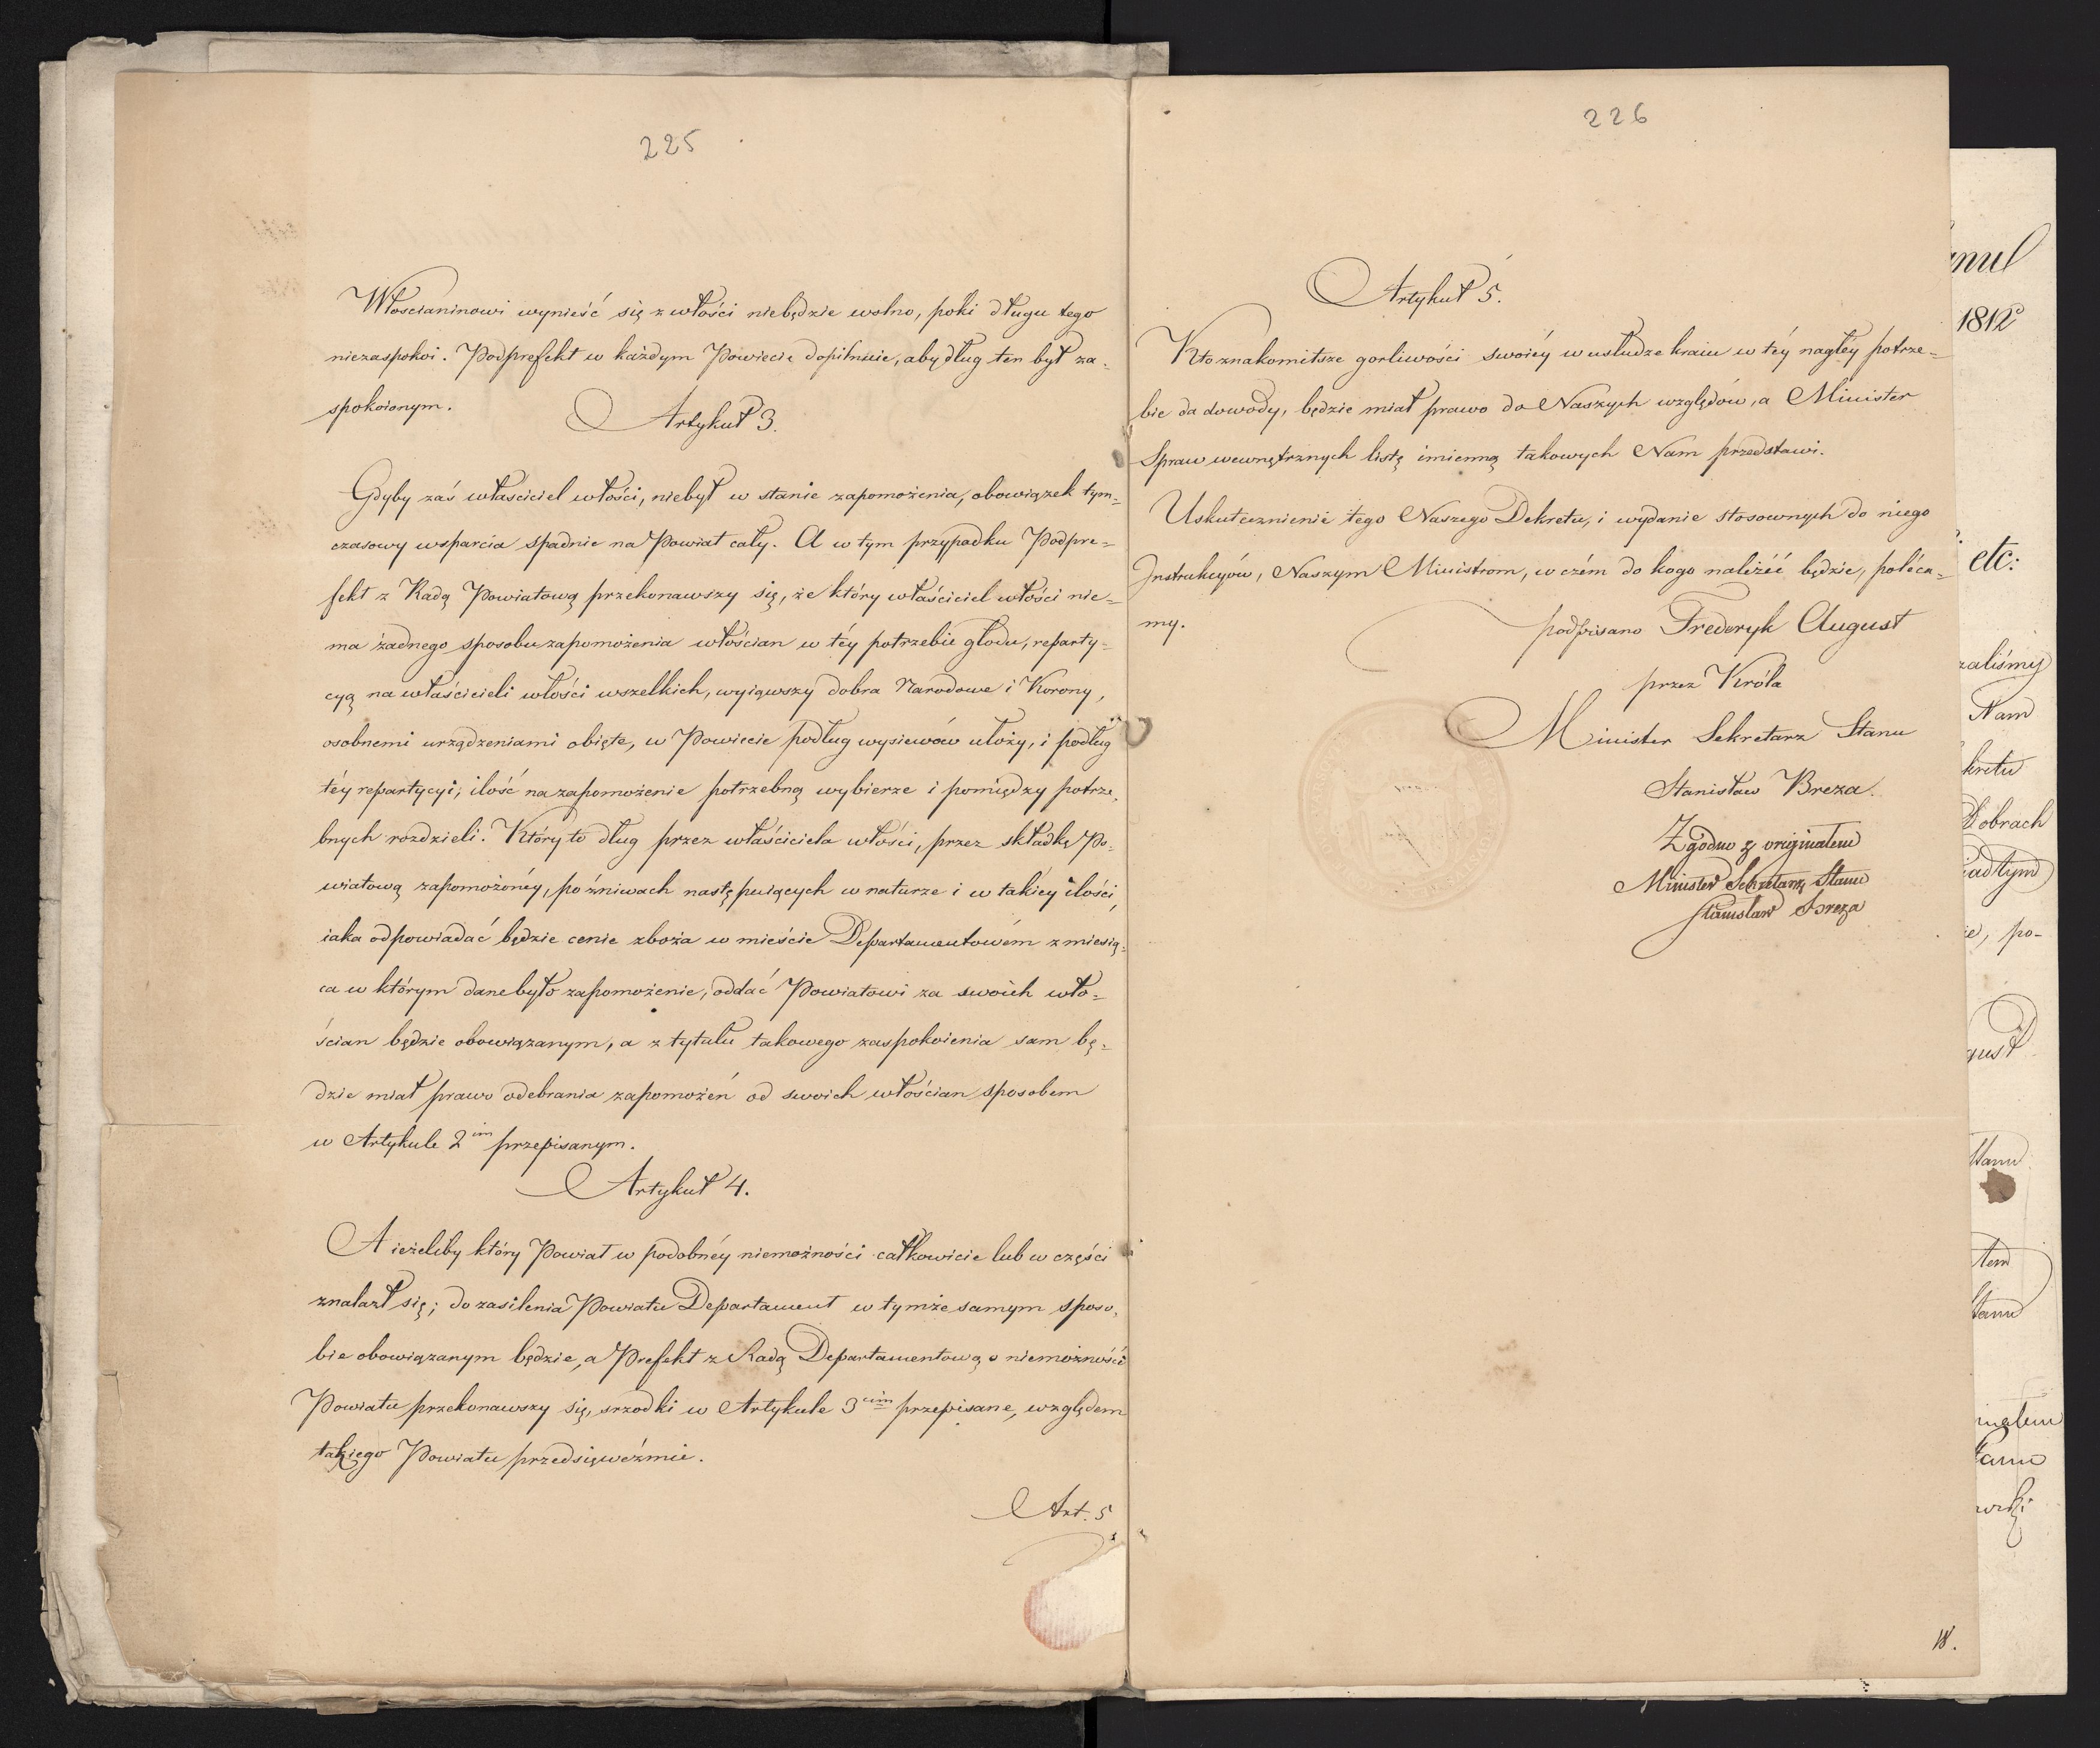 225
Włoscianinowi wynieść się z włości niebędzie wolno, poki długu tego
niezaspokoi. Podprefekt w każdym Powiecie dopilnuie, aby dług ten był za-
spokoionym.
Artykuł 3.
Gdyby zaś właściciel włości, niebył w stanie zapomożenia, obowiązek tym-
czasowy wsparcia spadnie na Powiat cały. A w tym przypadku Podpre-
fekt z Radą Powiatową przekonawszy się, że który właściciel włości nie-
ma żadnego sposobu zapomożenia włościan w téy potrzebie głodu, reparty-
cyą na właścicieli włości wszelkich, wyiąwszy dobra Narodowe i Korony,
osobnemi urządzeniami obięte, w Powiecie podług wysiewów ułoży, i podług
téy repartycyi, ilość na zapomożenie potrzebną wybierze i pomiędzy potrze-
bnych rozdzieli. Który to dług przez właściciela włości, przez składkę Po-
wiatową zapomożonéy, po żniwach następuiących w naturze i w takiéy ilości,
iaka odpowiadać będzie cenie zboża w mieście Departamentowém z miesią-
ca w którym dane było zapomożenie, oddać Powiatowi za swoich wło-
ścian będzie obowiązanym, a z tytułu takowego zaspokoienia sam bę-
dzie miał prawo odebrania zapomożeń od swoich włościan sposobem
w Artykule 2im przepisanym.
Artykuł 4.
A ieżeliby który Powiat w podobnéy niemożności całkowicie lub w części
znalazł się; do zasilenia Powiatu Departament w tymże samym sposo-
bie obowiązanym będzie, a Prefekt z Radą Departamentową o niemożności
Powiatu przekonawszy się, srzodki w Artykule 3cim przepisane, względem
takiego Powiatu przedsięweźmie.
Art. 5
226
Artykuł 5.
Kto znakomitsze gorliwości swoiéy w usłudze kraiu w téy nagłéy potrze-
bie da dowody, będzie miał prawo do Naszych względów, a Minister
Spraw wewnętrznych listę imienną takowych Nam przedstawi.
Uskutecznienie tego Naszego Dekretu, i wydanie stosownych do niego
Instrukcyów, Naszym Ministrom, w czém do kogo należéć będzie, poléca-
my.
podpisano Frederyk August
przez Króla
Minister Sekretarz Stanu
Stanisław Breza.
Zgodno z originałem
Minister Sekretarz Stanu
Stanisław Breza
18.
1812
etc:
zaliśmy
Nam
kretu
Dobrach
po-
gust
Stanu